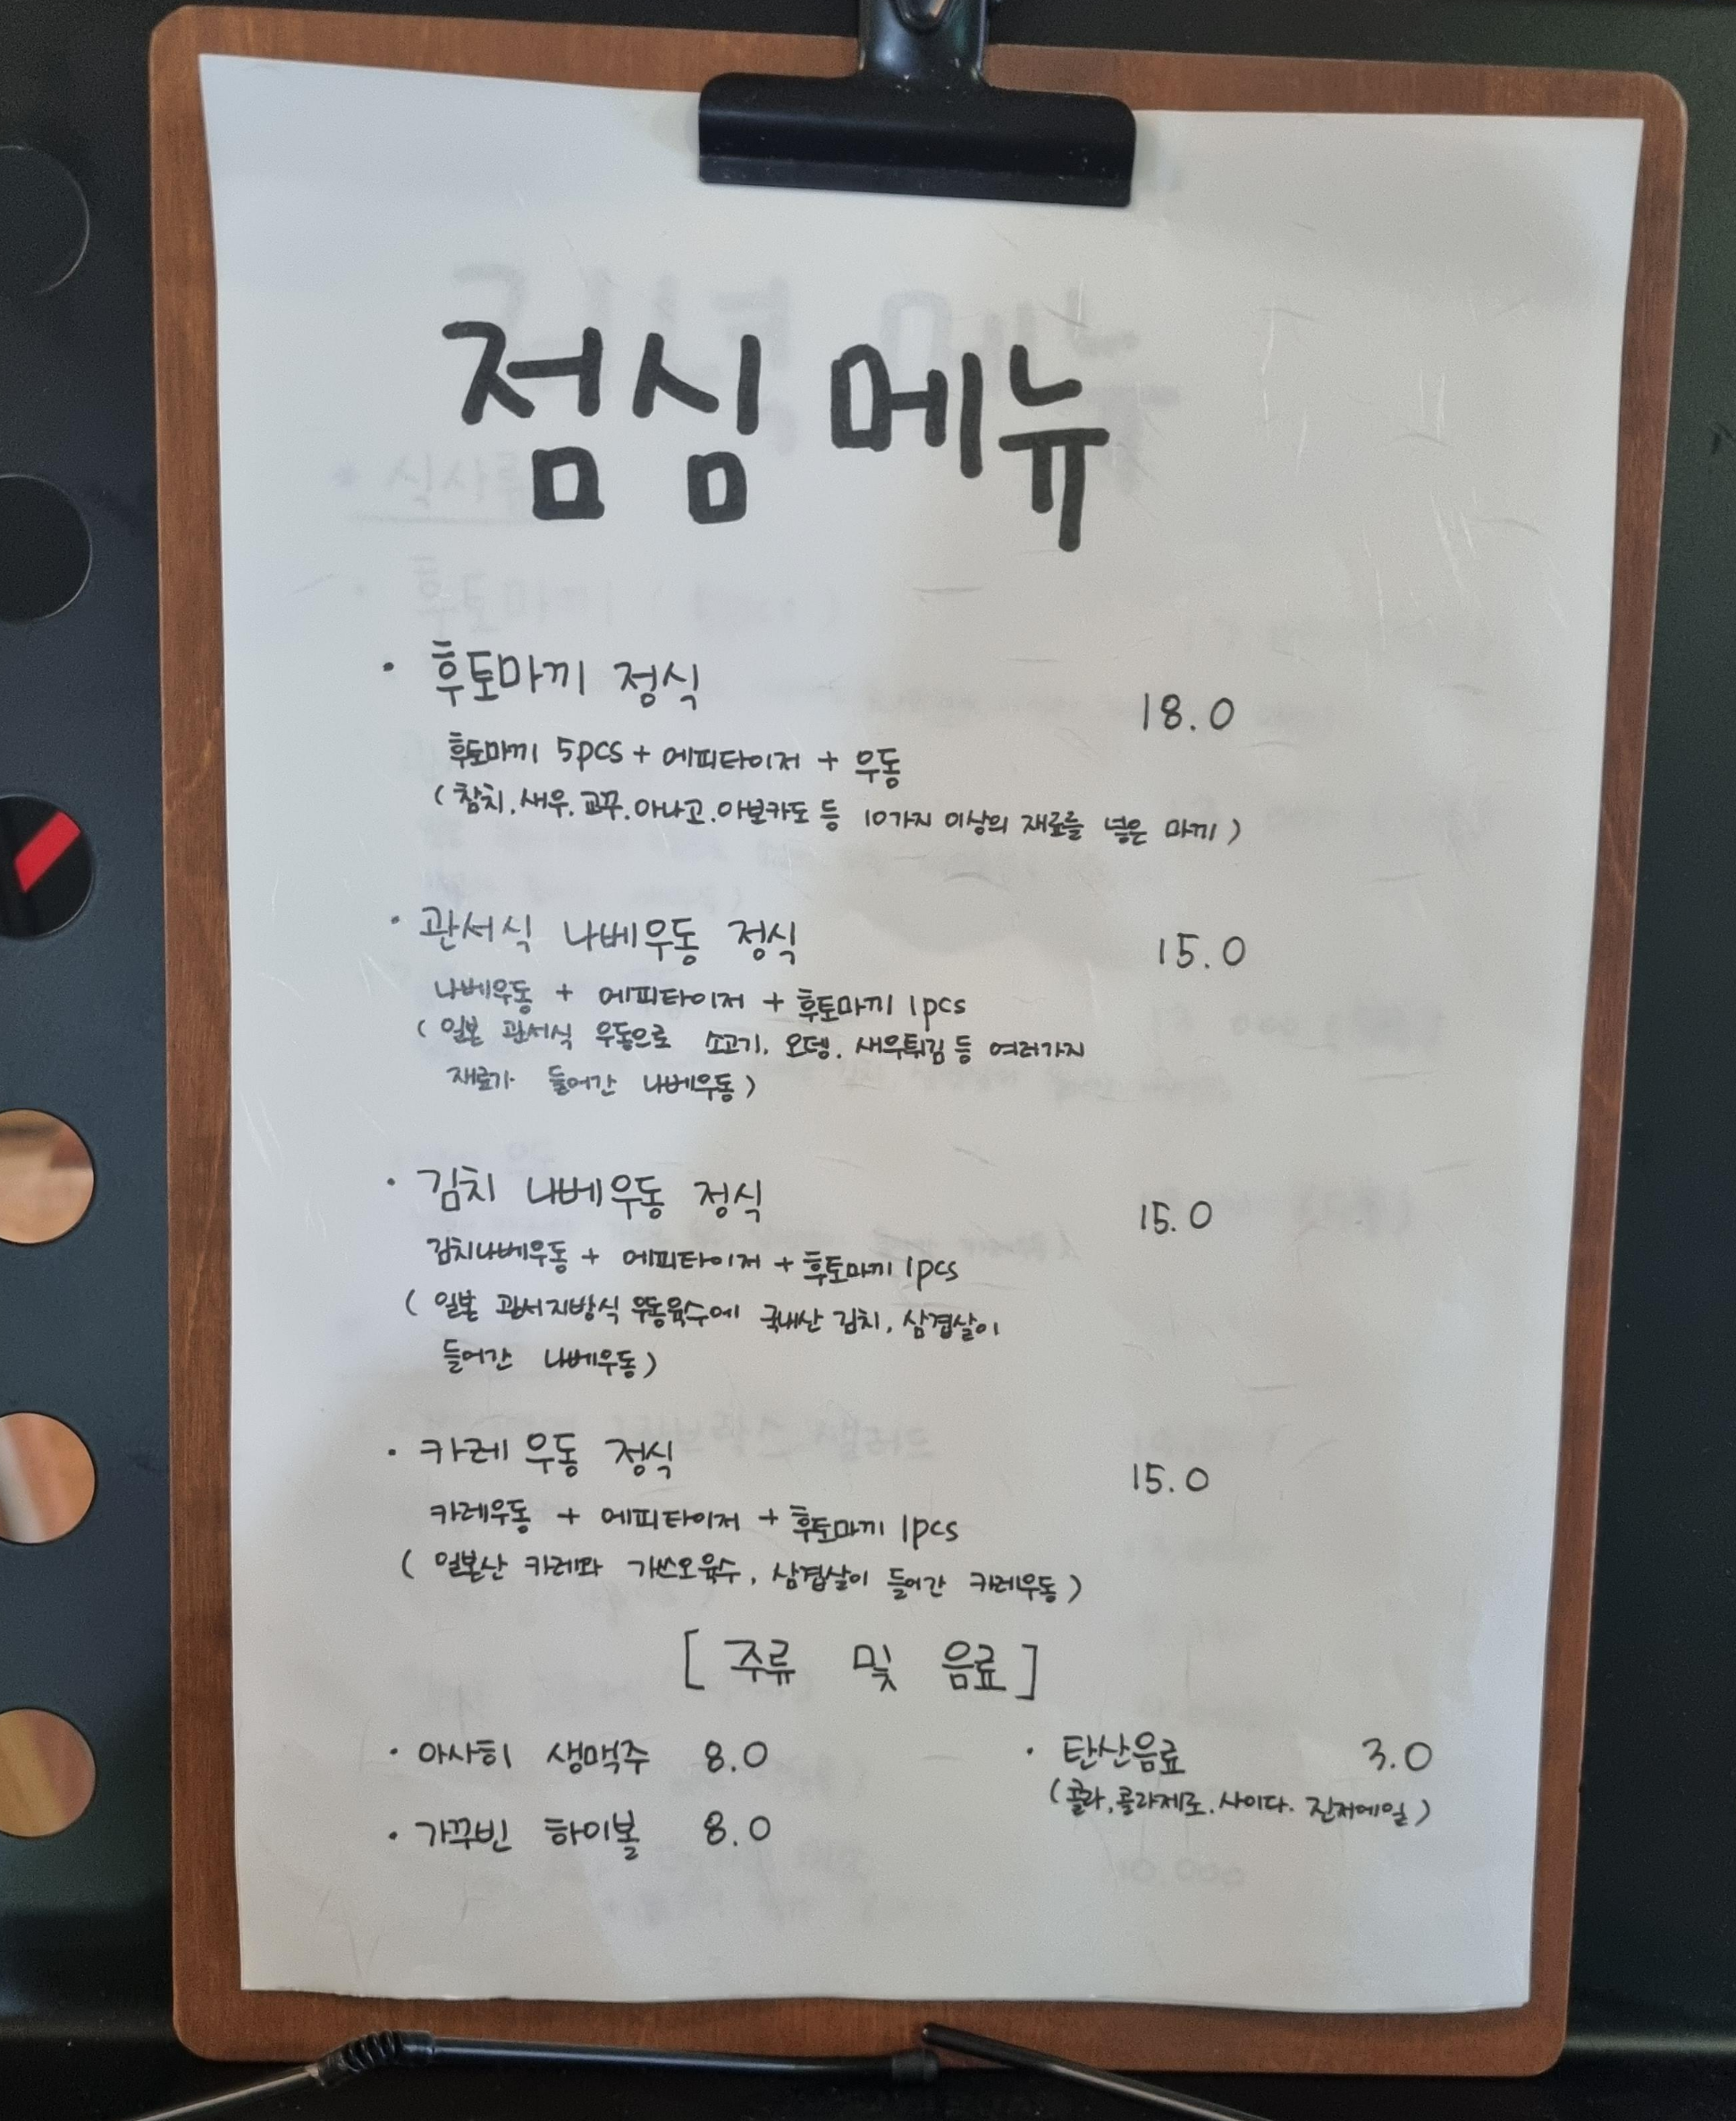 점심 메뉴
· 후토마끼 정식 18.0
후토마끼 5pcs + 에피타이저 + 우동
(참치, 새우, 교꾸, 아나고, 아보카도 등 10가지 이상의 재료를 넣은 마끼)
· 관서식 나베우동 정식 15.0
나베우동 + 에피타이저 + 후토마끼 1pcs
(일본 관서식 우동으로 소고기, 오뎅, 새우튀김 등 여러가지
재료가 들어간 나베우동)
· 김치 나베우동 정식 15.0
김치나베우동 + 에피타이저 + 후토마끼 1pcs
(일본 관서지방식 우동육수에 국내산 김치, 삼겹살이
들어간 나베우동)
· 카레 우동 정식 15.0
카레우동 + 에피타이저 + 후토마끼 1pcs
(일본산 카레와 가쓰오육수, 삼겹살이 들어간 카레우동)
[주류 및 음료]
· 아사히 생맥주 8.0
· 가꾸빈 하이볼 8.0
· 탄산음료 3.0
(콜라, 콜라제로, 사이다. 진저에일)